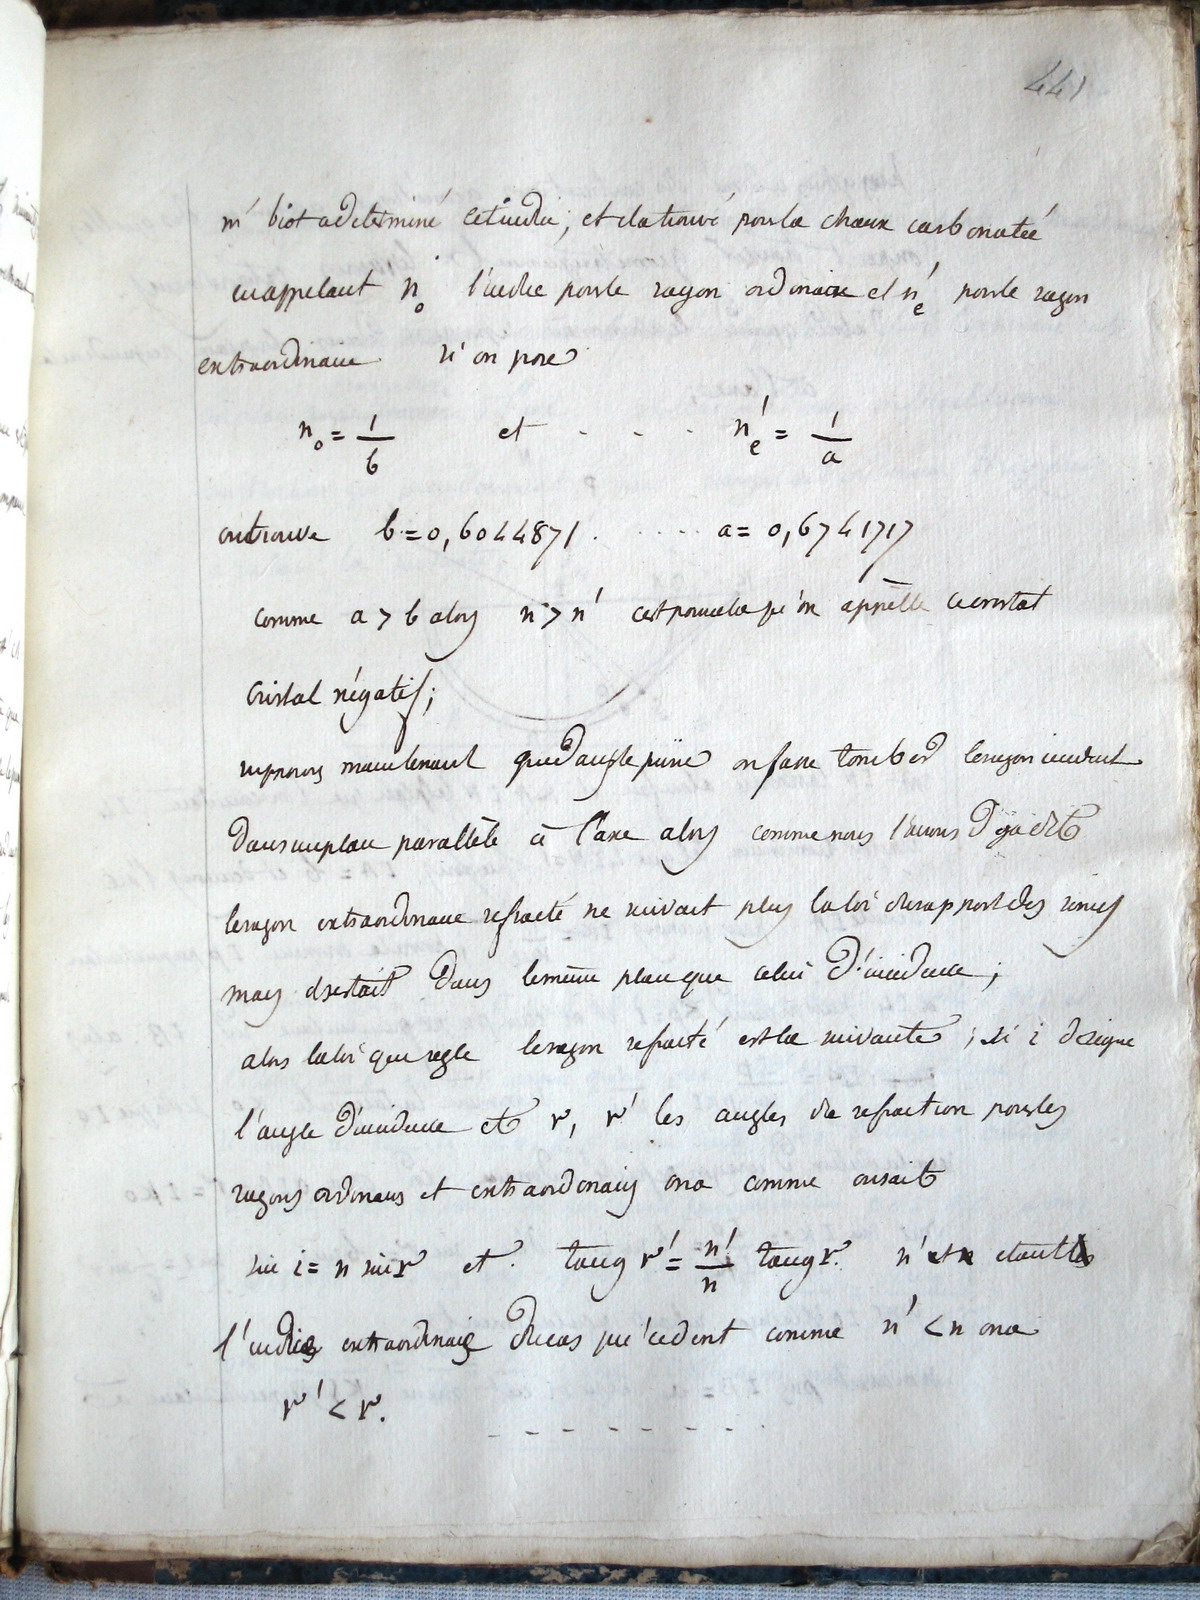 441
mr biot a determiné cet indice; et il a trouvé pour la chaux carbonatée
en appelant n₀ l'indice pour le rayon ordinaire et n'ₑ pour le rayon
extraordinaire si on pose
n₀ = 1/b et - - - n'ₑ = 1/a
on trouve b = 0,6044871. .... a = 0,6741717
comme a > b alors n > n' c'est pour cela qu'on appèlle ce cristal
cristal négatif;
suposons maintenant que dans le prisme on fasse tomber le rayon incident
dans un plan parallèle à l'axe alors comme nous l'avons déja dit
le rayon extraordinaire refracté ne suivait plus la loi du rapport des sinus
mais il restait dans le même plan que celui d'incidence;
alors la loi qui regle le rayon refracté est la suivante; si i désigne
l'angle d'incidence et r, r' les angles de refraction pour les
rayons ordinaires et extraordinaires on a comme on sait
sin i = n sin r et tang r' = n'/n tang r. n' étant
l'indice extraordinaire du cas précédent comme n' < n on a
r' < r.
- - - - - - - -